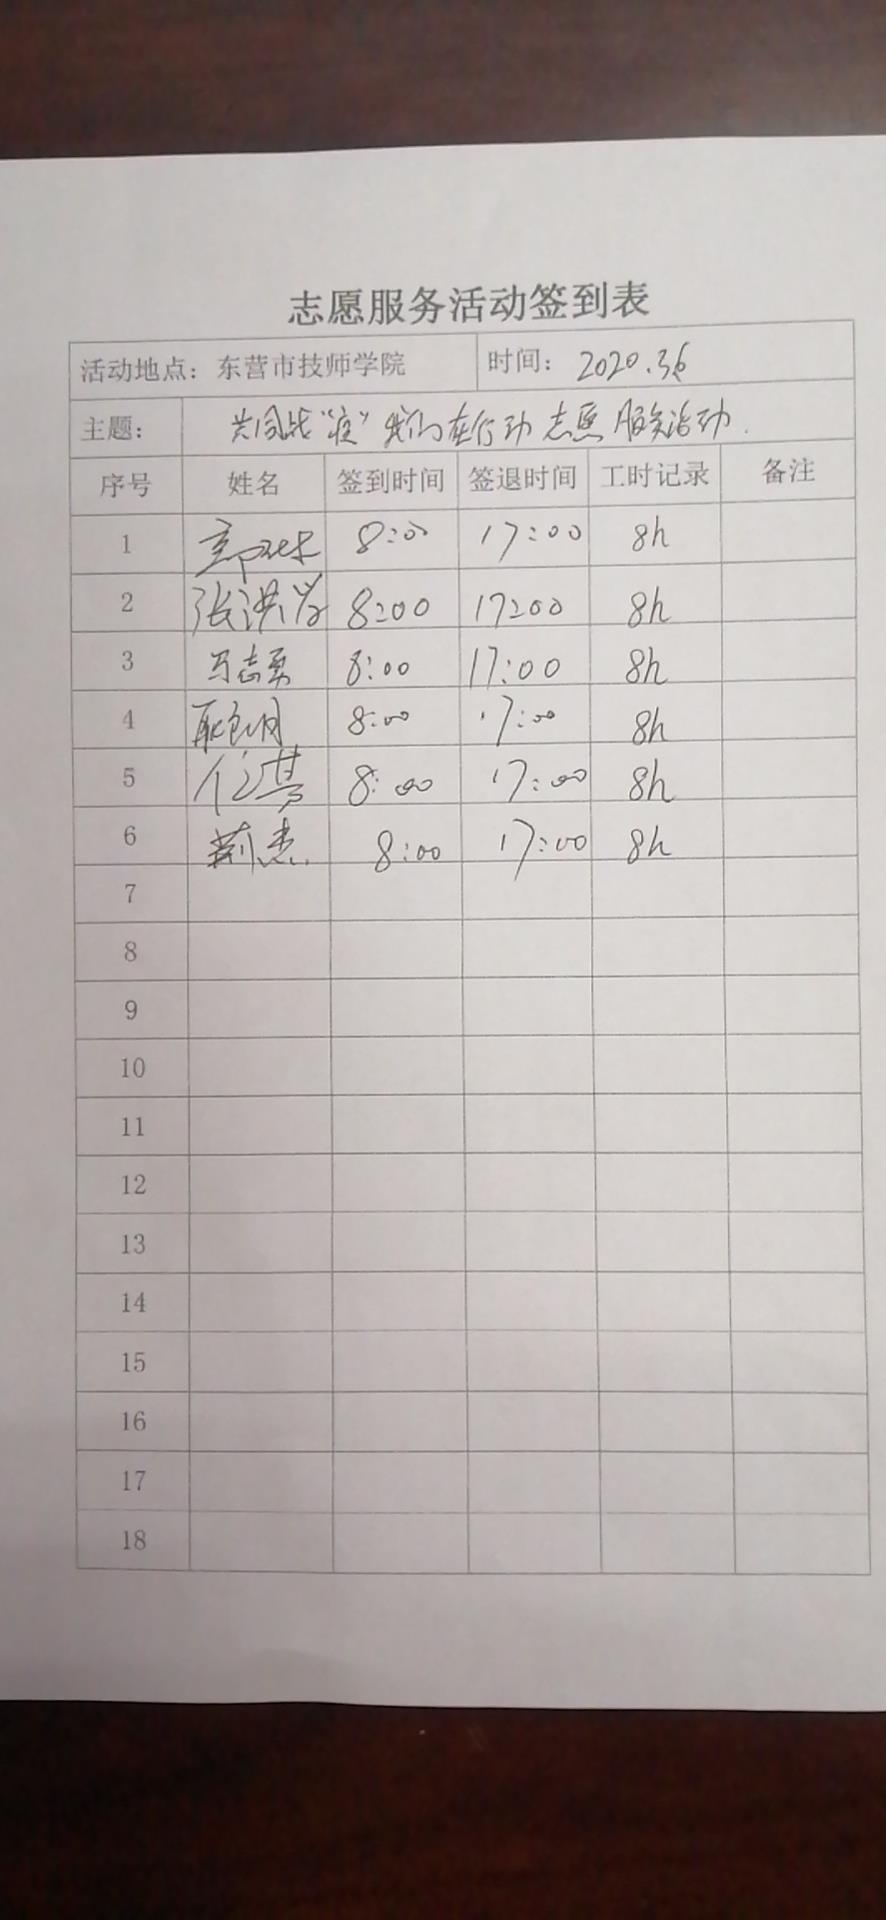 志愿服务活动签到表
活动地点：东营市技师学院 时间：2020.3.6
主题： 共同战“疫”我们在行动 志愿服务活动.
序号 姓名 签到时间 签退时间 工时记录 备注
1 8:00 17:00 8h
2 张洪 8:00 17:00 8h
3 马志勇 8:00 17:00 8h
4 耿 8:00 17:00 8h
5 8:00 17:00 8h
6 荆杰 8:00 17:00 8h
7
8
9
10
11
12
13
14
15
16
17
18